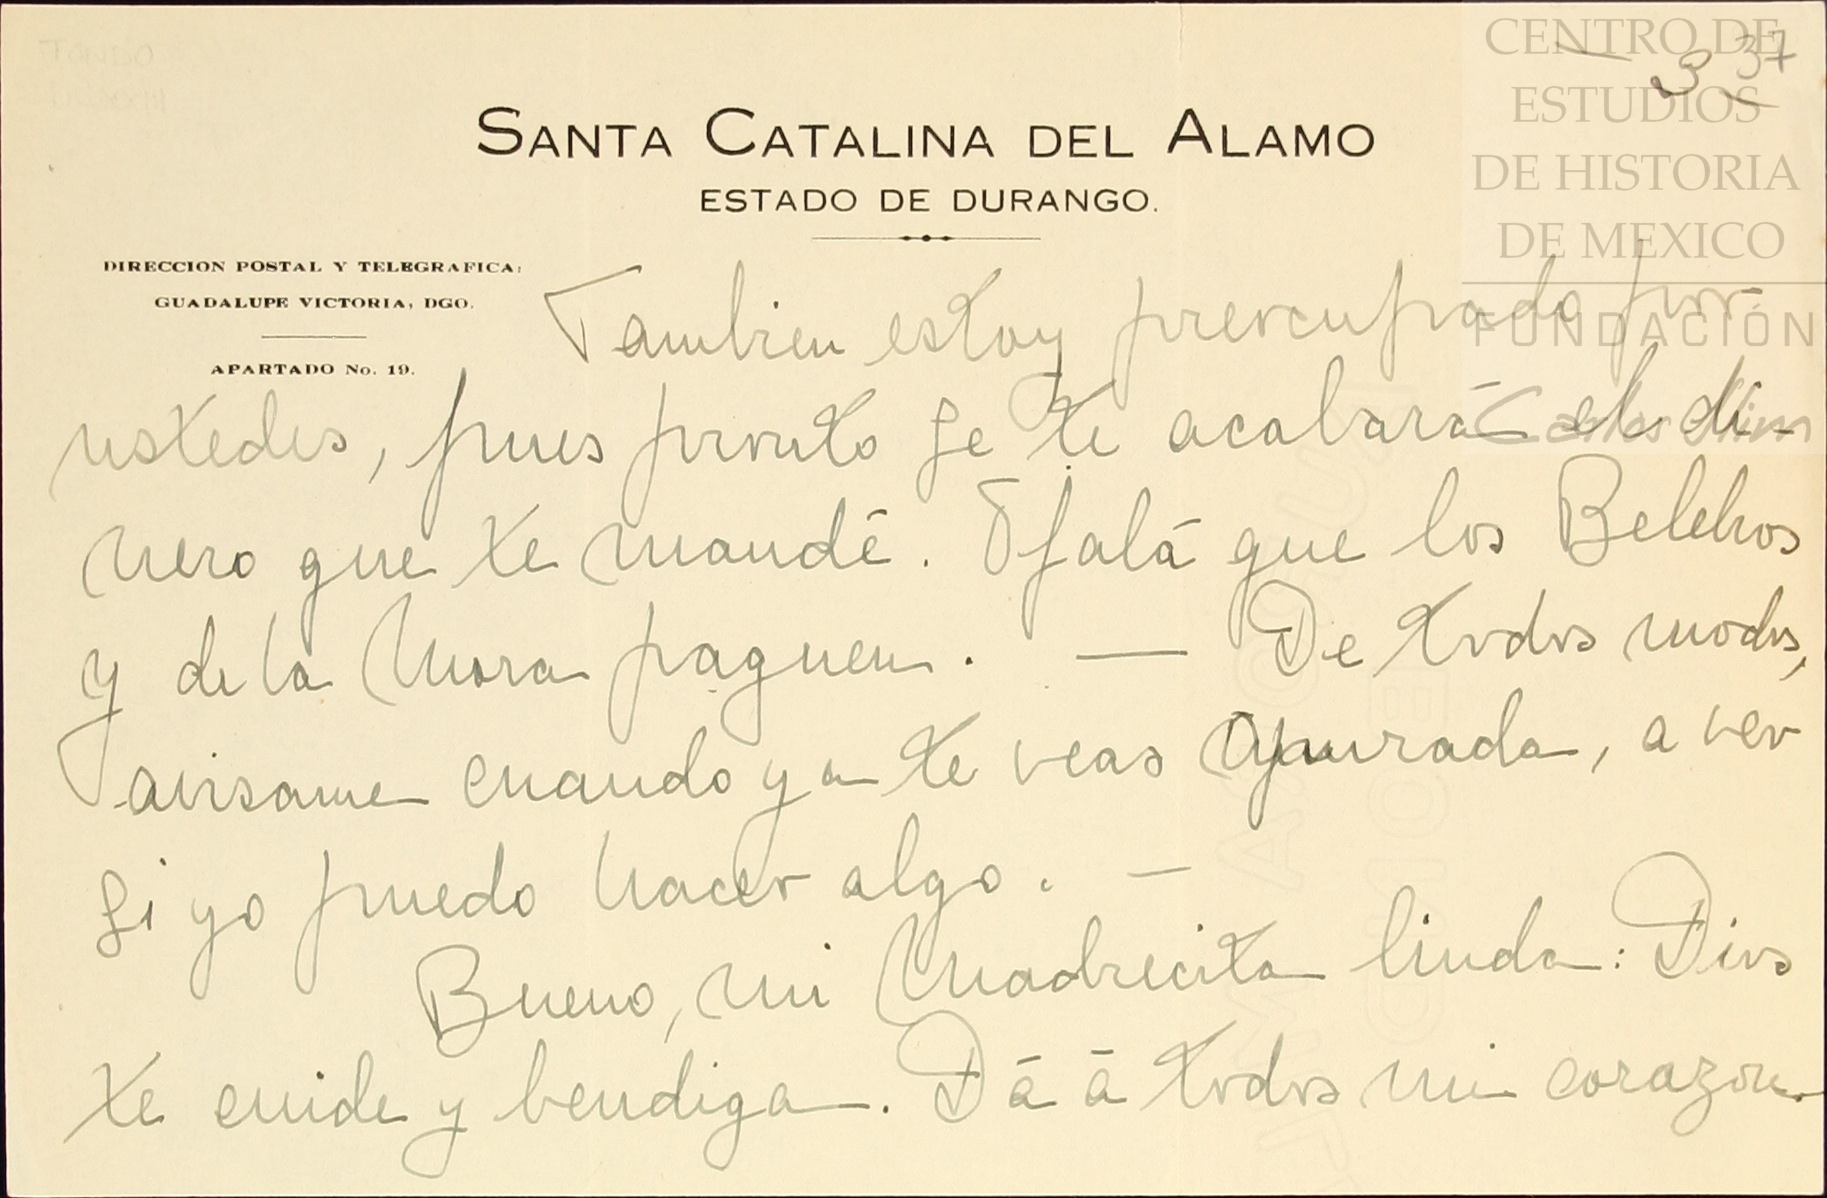 CENTRO DE
ESTUDIOS
DE HISTORIA
DE MEXICO
FUNDACIÓN
Carlos Slim
3 37
SANTA CATALINA DEL ALAMO
ESTADO DE DURANGO.
DIRECCION POSTAL Y TELEGRAFICA:
GUADALUPE VICTORIA, DGO.
APARTADO No. 19.
Tambien estoy preocupado por
ustedes, pues pronto se te acabará el di-
nero que te mandé. Ojalá que los Belchos
y de la Mora paguen. — De todos modos,
avisame cuando ya te veas apurada, a ver
si yo puedo hacer algo. —
Bueno, mi Madrecita linda: Dios
te cuide y bendiga. Dá á todos mi corazon.